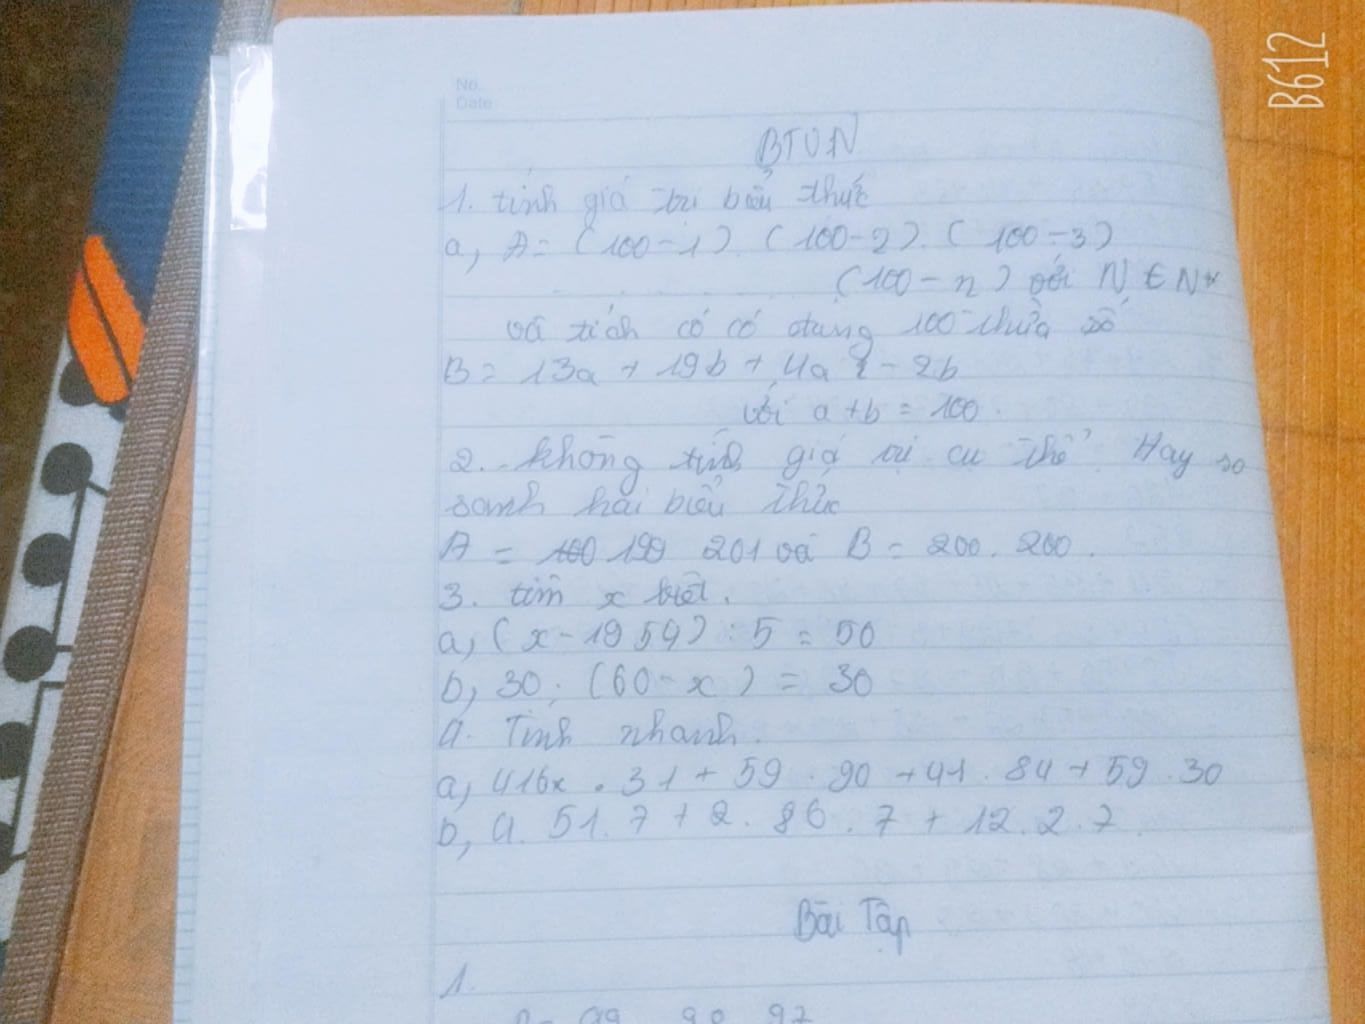 B612
No.
Date
BTVN
1. tính giá trị biểu thức
a, A = (100 - 1). (100 - 2). (100 - 3)
(100 - n) với N ∈ N*
và tích có có đúng 100 thừa số
B = 13a + 19b + 4a - 2b
với a + b = 100.
2. không tính giá trị cụ thể Hay so
sanh hai biểu thức
A = 199 201 và B = 200. 200.
3. tìm x biết.
a, (x - 1954) : 5 = 50
b, 30. (60 - x) = 30
4. Tính nhanh.
a, 41 . 31 + 59 . 90 + 41 . 84 + 59 . 30
b, 4. 51. 7 + 2. 86. 7 + 12. 2. 7
Bài Tập
1.
99 98 97